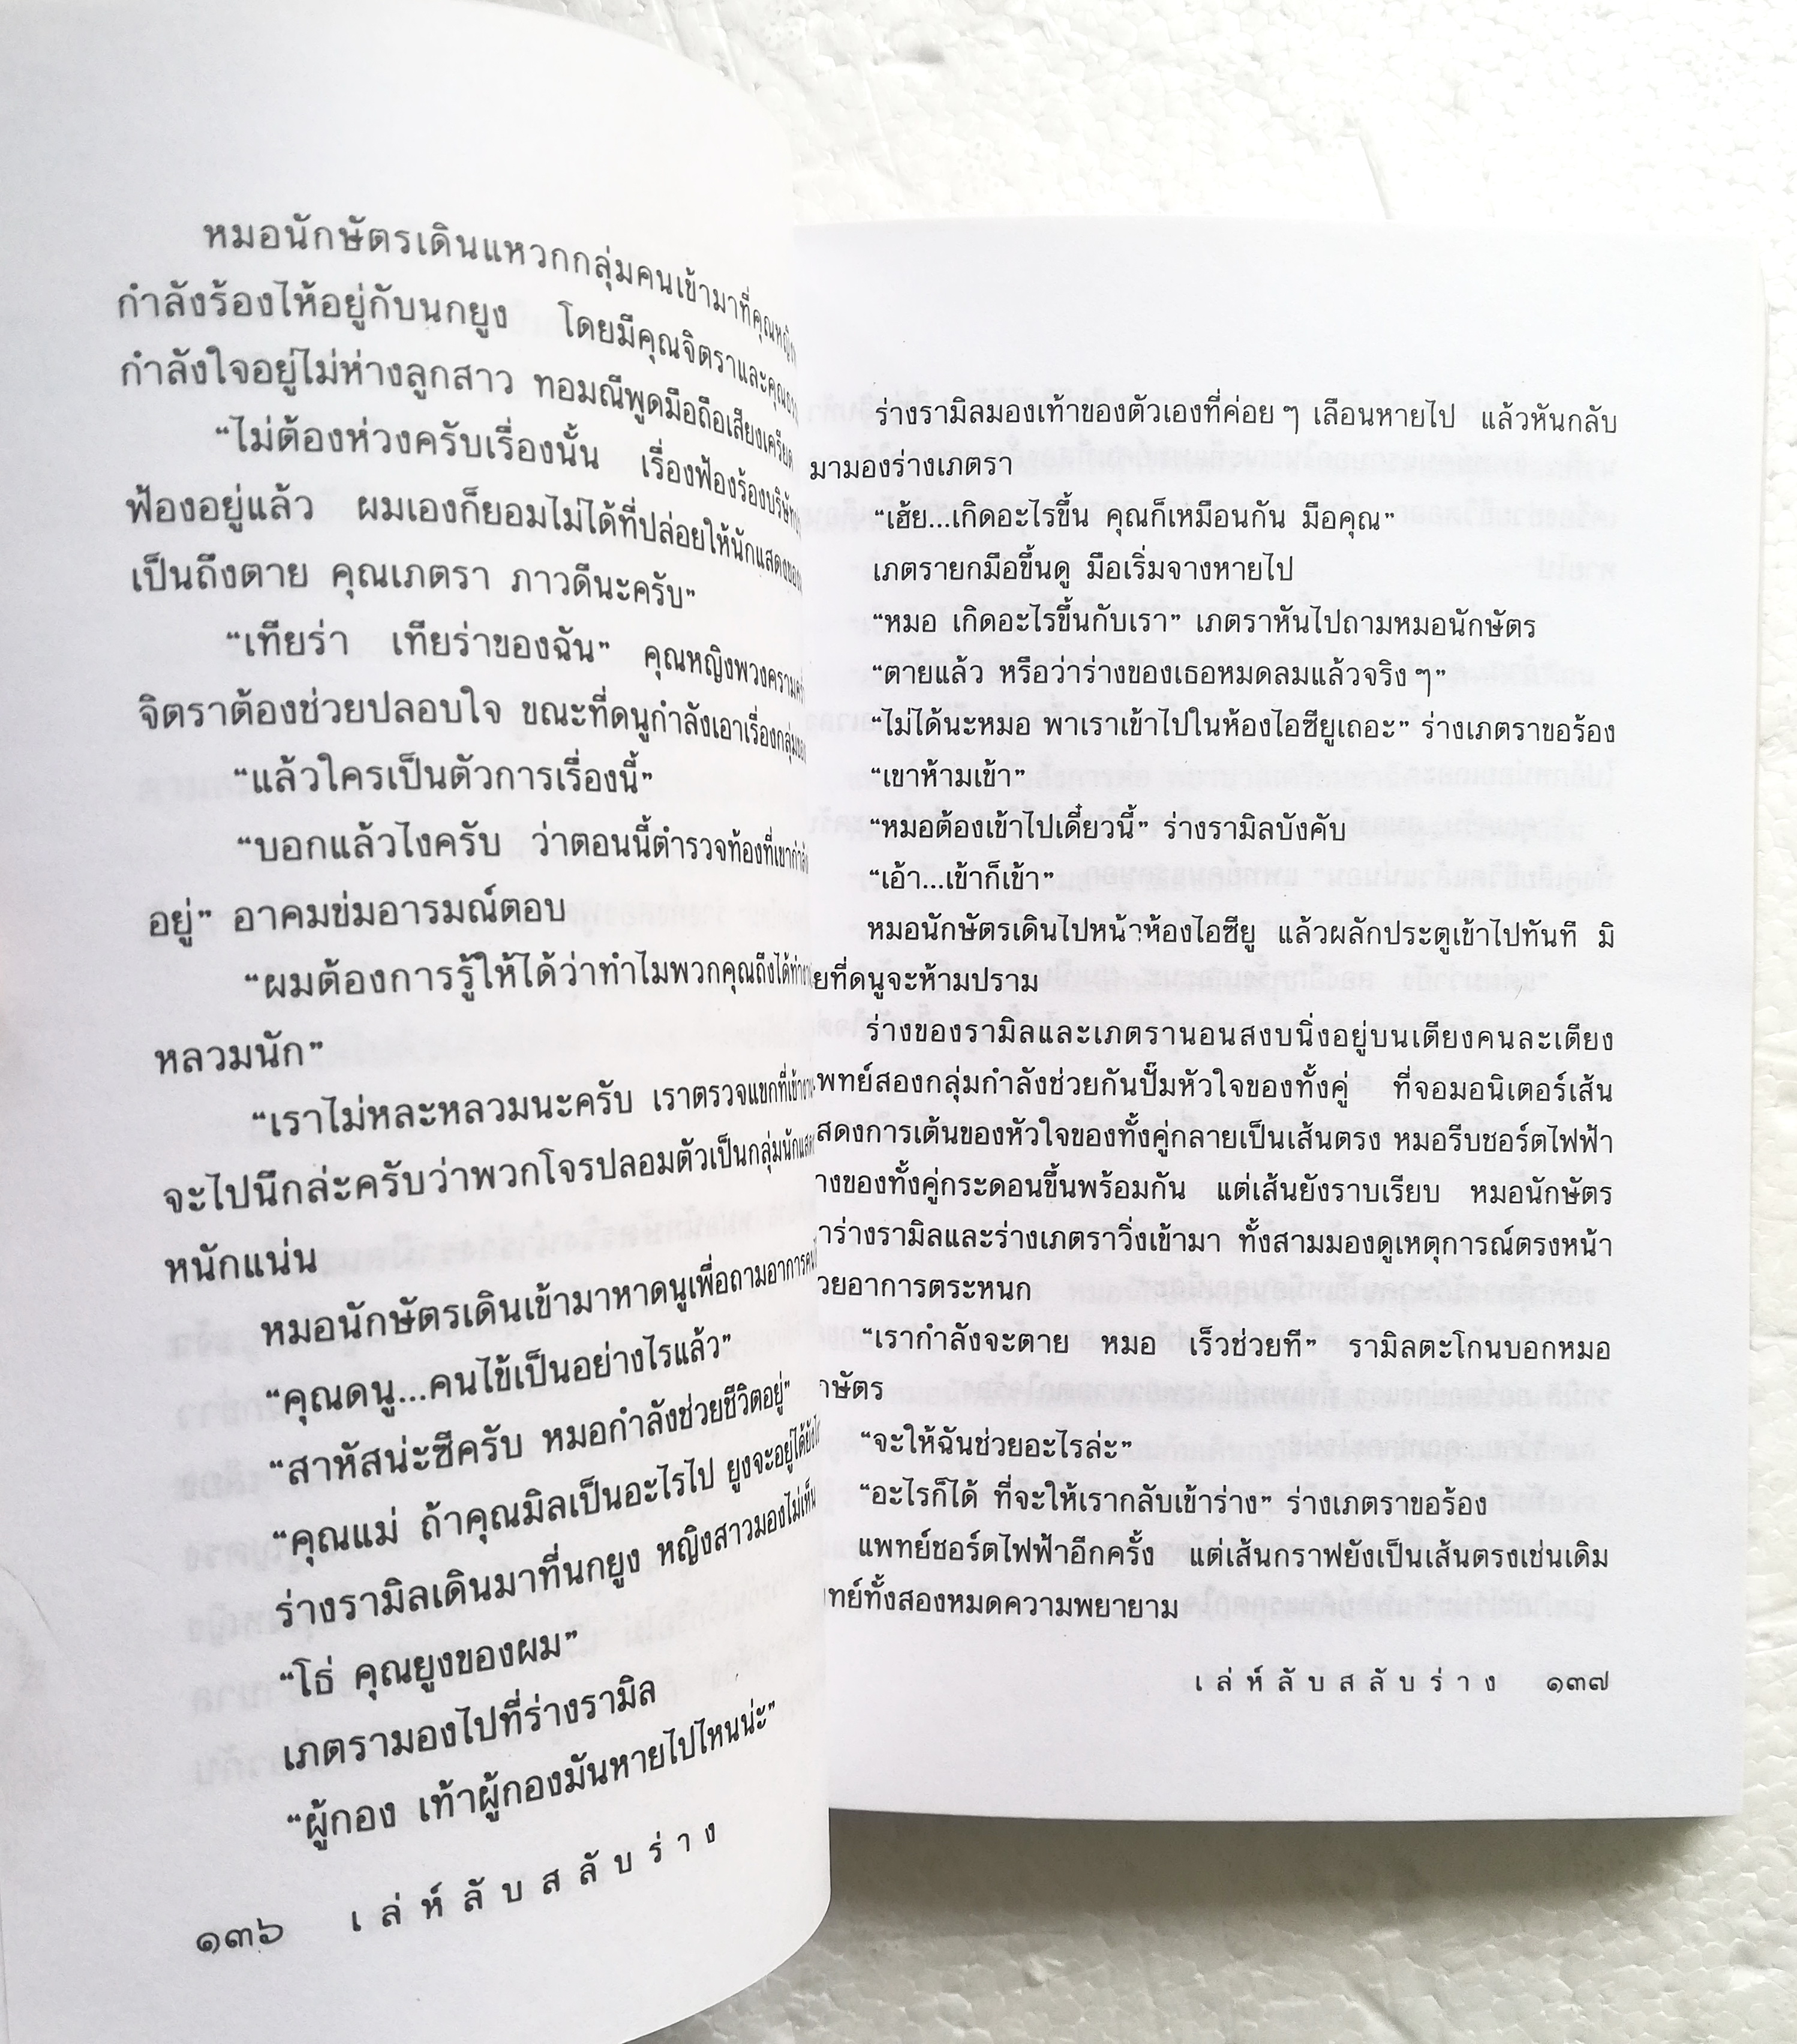 หมอนักษัตรเดินแหวกกลุ่มคนเข้ามาที่คุณหญิง
กำลังร้องไห้อยู่กับนกยูง โดยมีคุณจิตราและ
กำลังใจอยู่ไม่ห่างลูกสาว ทอมณีพูดมือถือเสียงเครียด
“ไม่ต้องห่วงครับเรื่องนั้น เรื่องฟ้องร้องบริษัท
ฟ้องอยู่แล้ว ผมเองก็ยอมไม่ได้ที่ปล่อยให้นักแสดง
เป็นถึงตาย คุณเภตรา ภาวดีนะครับ”
“เทียร่า เทียร่าของฉัน” คุณหญิงพวงคราม
จิตราต้องช่วยปลอบใจ ขณะที่ดนูกำลังเอาเรื่องกลุ่ม
“แล้วใครเป็นตัวการเรื่องนี้”
“บอกแล้วไงครับ ว่าตอนนี้ตำรวจท้องที่เขา
อยู่” อาคมข่มอารมณ์ตอบ
“ผมต้องการรู้ให้ได้ว่าทำไมพวกคุณถึงได้
หลวมนัก”
“เราไม่หละหลวมนะครับ เราตรวจแขกที่เข้า
จะไปนึกล่ะครับว่าพวกโจรปลอมตัวเป็นกลุ่ม
หนักแน่น
หมอนักษัตรเดินเข้ามาหาดนูเพื่อถามอาการ
“คุณดนู...คนไข้เป็นอย่างไรแล้ว”
“สาหัสน่ะซีครับ หมอกำลังช่วยชีวิตอยู่”
“คุณแม่ ถ้าคุณมิลเป็นอะไรไป ยูงจะอยู่ได้
ร่างรามิลเดินมาที่นกยูง หญิงสาวมองไม่เห็น
“โธ่ คุณยูงของผม”
เภตรามองไปที่ร่างรามิล
“ผู้กอง เท้าผู้กองมันหายไปไหนน่ะ”
๑๓๖ เล่ห์ลับสลับร่าง
ร่างรามิลมองเท้าของตัวเองที่ค่อย ๆ เลือนหายไป แล้วหันกลับ
มามองร่างเภตรา
“เฮ้ย...เกิดอะไรขึ้น คุณก็เหมือนกัน มือคุณ”
เภตรายกมือขึ้นดู มือเริ่มจางหายไป
“หมอ เกิดอะไรขึ้นกับเรา” เภตราหันไปถามหมอนักษัตร
“ตายแล้ว หรือว่าร่างของเธอหมดลมแล้วจริง ๆ”
“ไม่ได้นะหมอ พาเราเข้าไปในห้องไอซียูเถอะ” ร่างเภตราขอร้อง
“เขาห้ามเข้า”
“หมอต้องเข้าไปเดี๋ยวนี้” ร่างรามิลบังคับ
“เอ้า...เข้าก็เข้า”
หมอนักษัตรเดินไปหน้าห้องไอซียู แล้วผลักประตูเข้าไปทันที มิ
ยที่ดนูจะห้ามปราม
ร่างของรามิลและเภตรานอนสงบนิ่งอยู่บนเตียงคนละเตียง
พทย์สองกลุ่มกำลังช่วยกันปั๊มหัวใจของทั้งคู่ ที่จอมอนิเตอร์เส้น
สดงการเต้นของหัวใจของทั้งคู่กลายเป็นเส้นตรง หมอรีบชอร์ตไฟฟ้า
างของทั้งคู่กระดอนขึ้นพร้อมกัน แต่เส้นยังราบเรียบ หมอนักษัตร
าร่างรามิลและร่างเภตราวิ่งเข้ามา ทั้งสามมองดูเหตุการณ์ตรงหน้า
วยอาการตระหนก
“เรากำลังจะตาย หมอ เร็วช่วยที” รามิลตะโกนบอกหมอ
กษัตร
“จะให้ฉันช่วยอะไรล่ะ”
“อะไรก็ได้ ที่จะให้เรากลับเข้าร่าง” ร่างเภตราขอร้อง
แพทย์ชอร์ตไฟฟ้าอีกครั้ง แต่เส้นกราฟยังเป็นเส้นตรงเช่นเดิม
พทย์ทั้งสองหมดความพยายาม
เล่ห์ลับสลับร่าง ๑๓๗